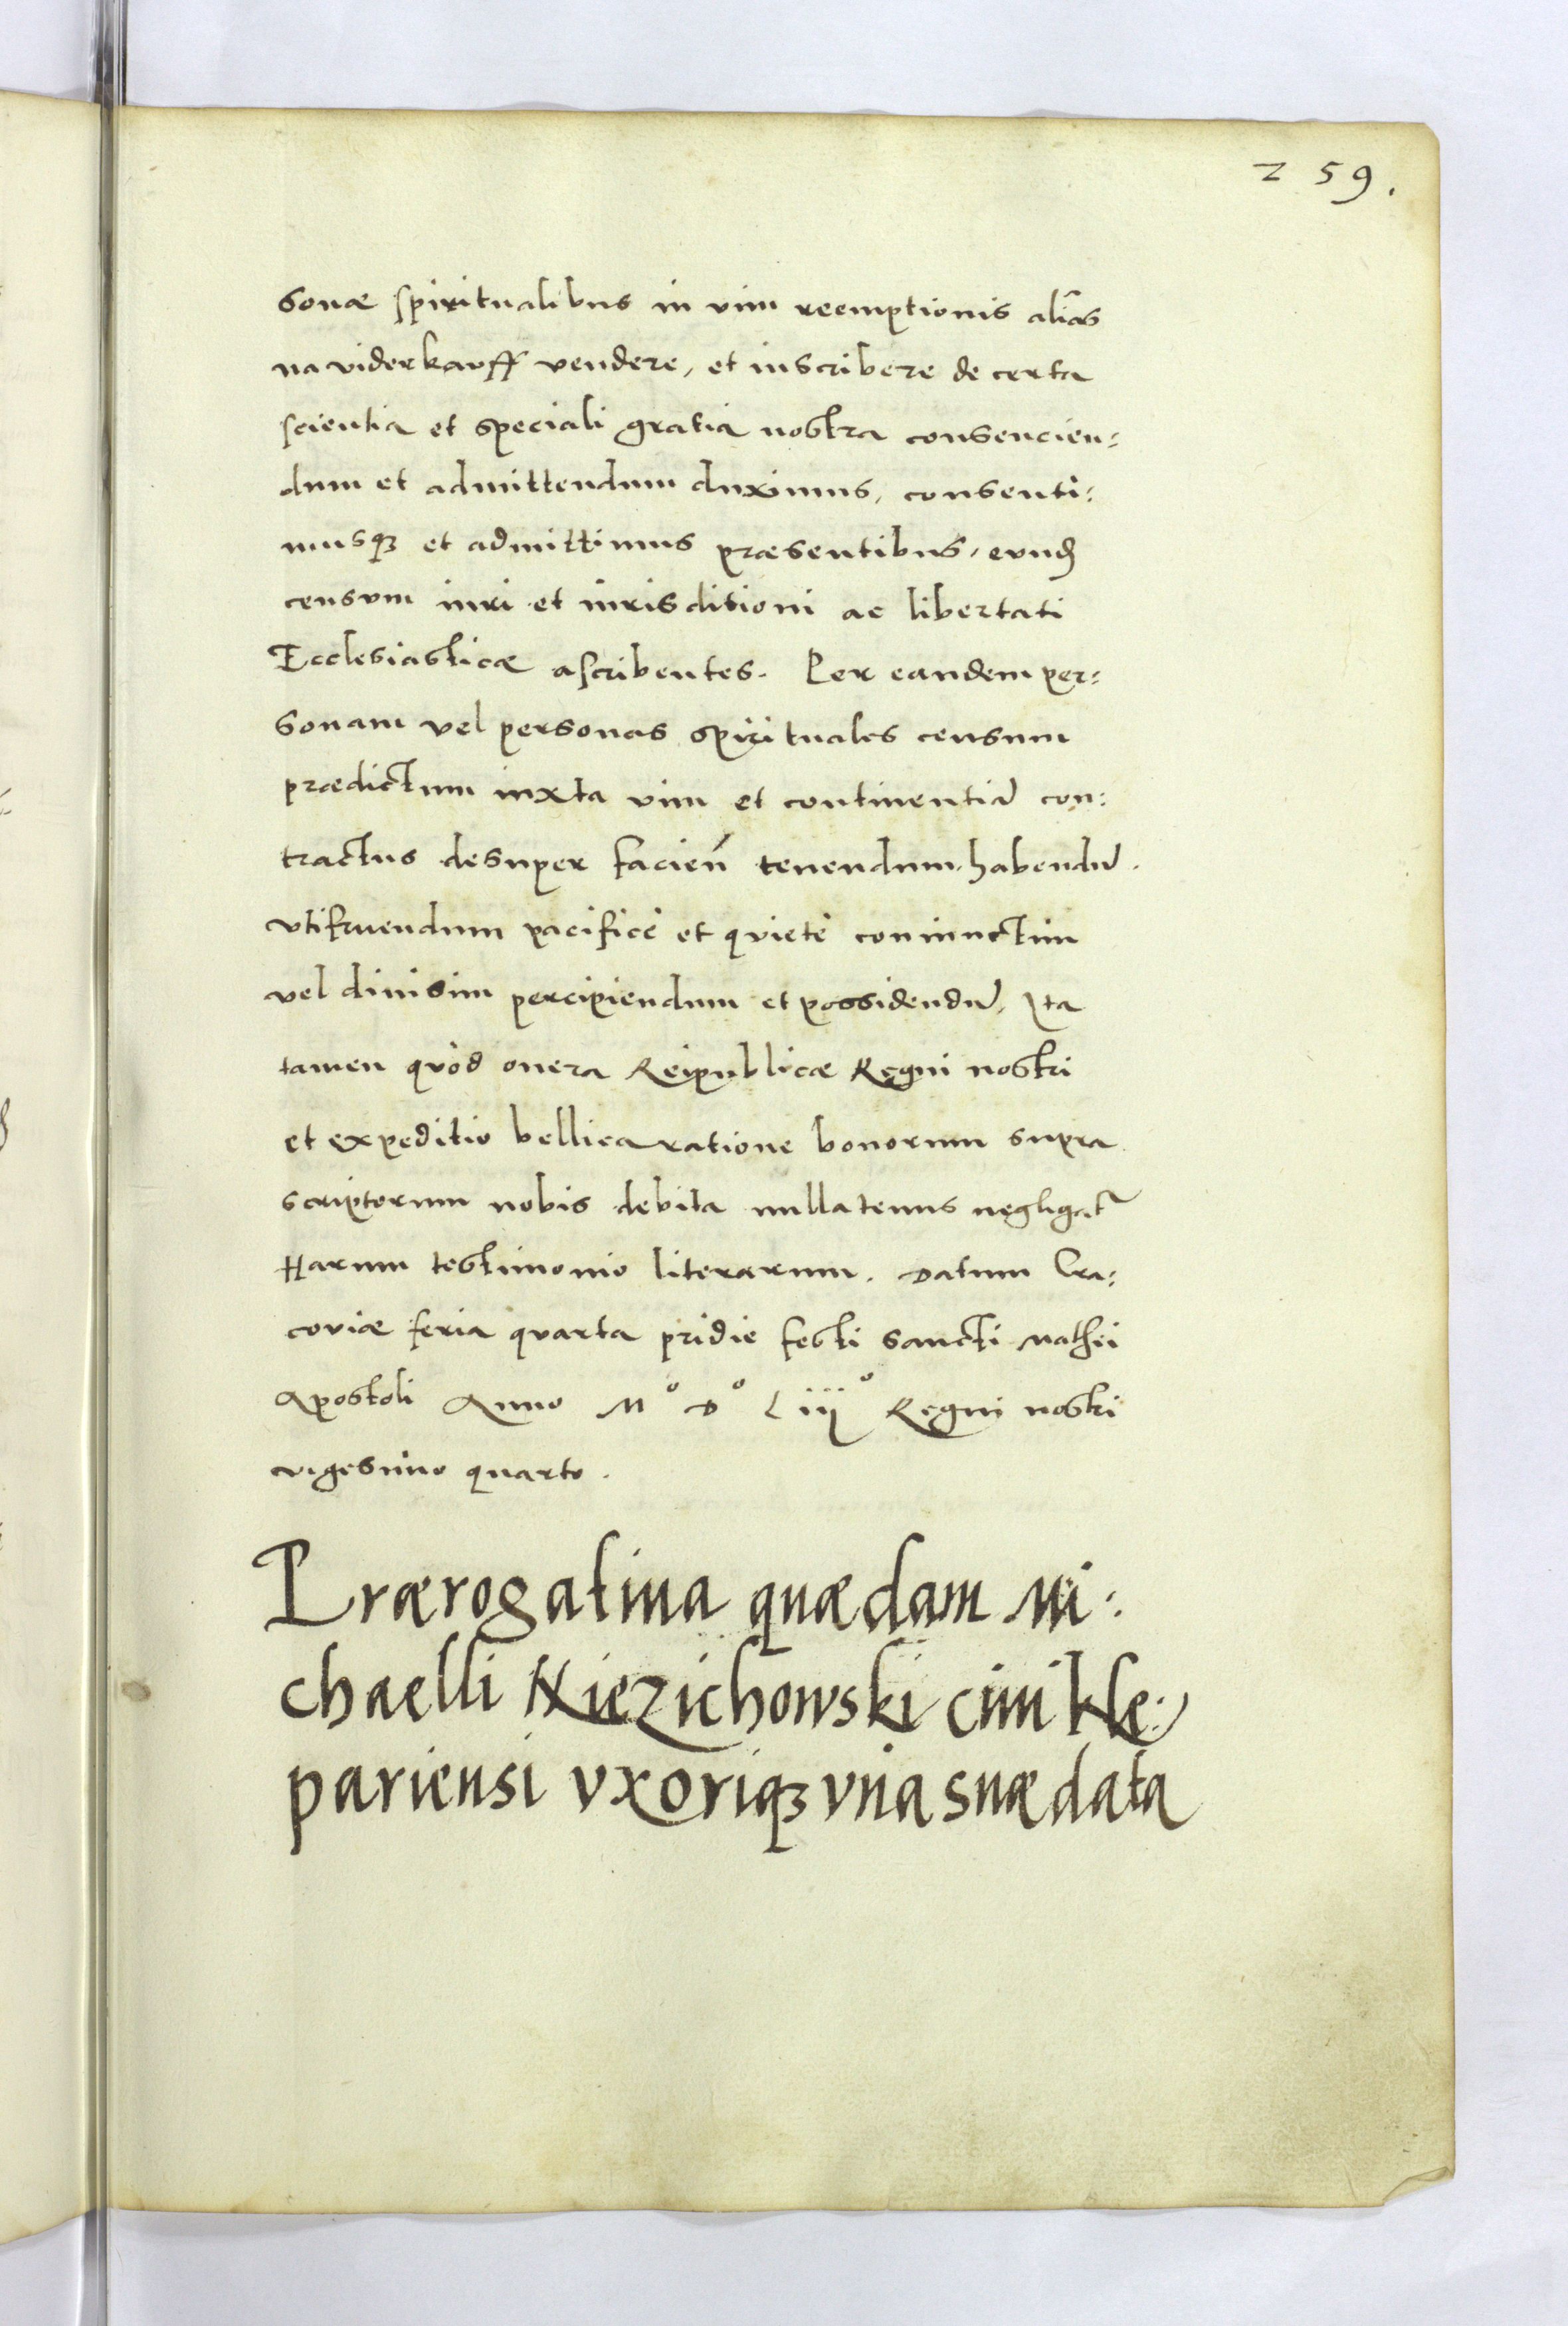 259.
sonæ spiritualibus in vim reemptionis aliàs
na viderkauff vendere, et inscribere de certa
scientia et speciali gratia nostra consencien=
dum et admittendum duximus, consenti=
musqꝫ et admittimus præsentibus, eundꝫ
censum iuri et iurisditioni ac libertati
Ecclesiasticæ ascribentes. Per eandem per=
sonam vel personas spirituales censum
prædictum iuxta vim et continentiã con=
tractus desuper facien̄ tenendum, habendũ.
vtifruendum pacificè et quietè coniunctim
vel diuisim percipiendum et possidendũ, Ita
tamen quòd onera Reipublicæ Regni nostri
et expeditio bellica ratione bonorum supra
scriptorum nobis debita nullatenus negligat᷑
Harum testimonio literarum. Datum Cra=
coviæ feria quarta pridie festi sancti Mathei
Apostoli Anno Mº Dº Liijº Regni nostri
vigesimo quarto.
Prærogatiua quædam Mi=
chaelli Niezichowski ciui Kle=
pariensi vxoriqꝫ vna suæ data